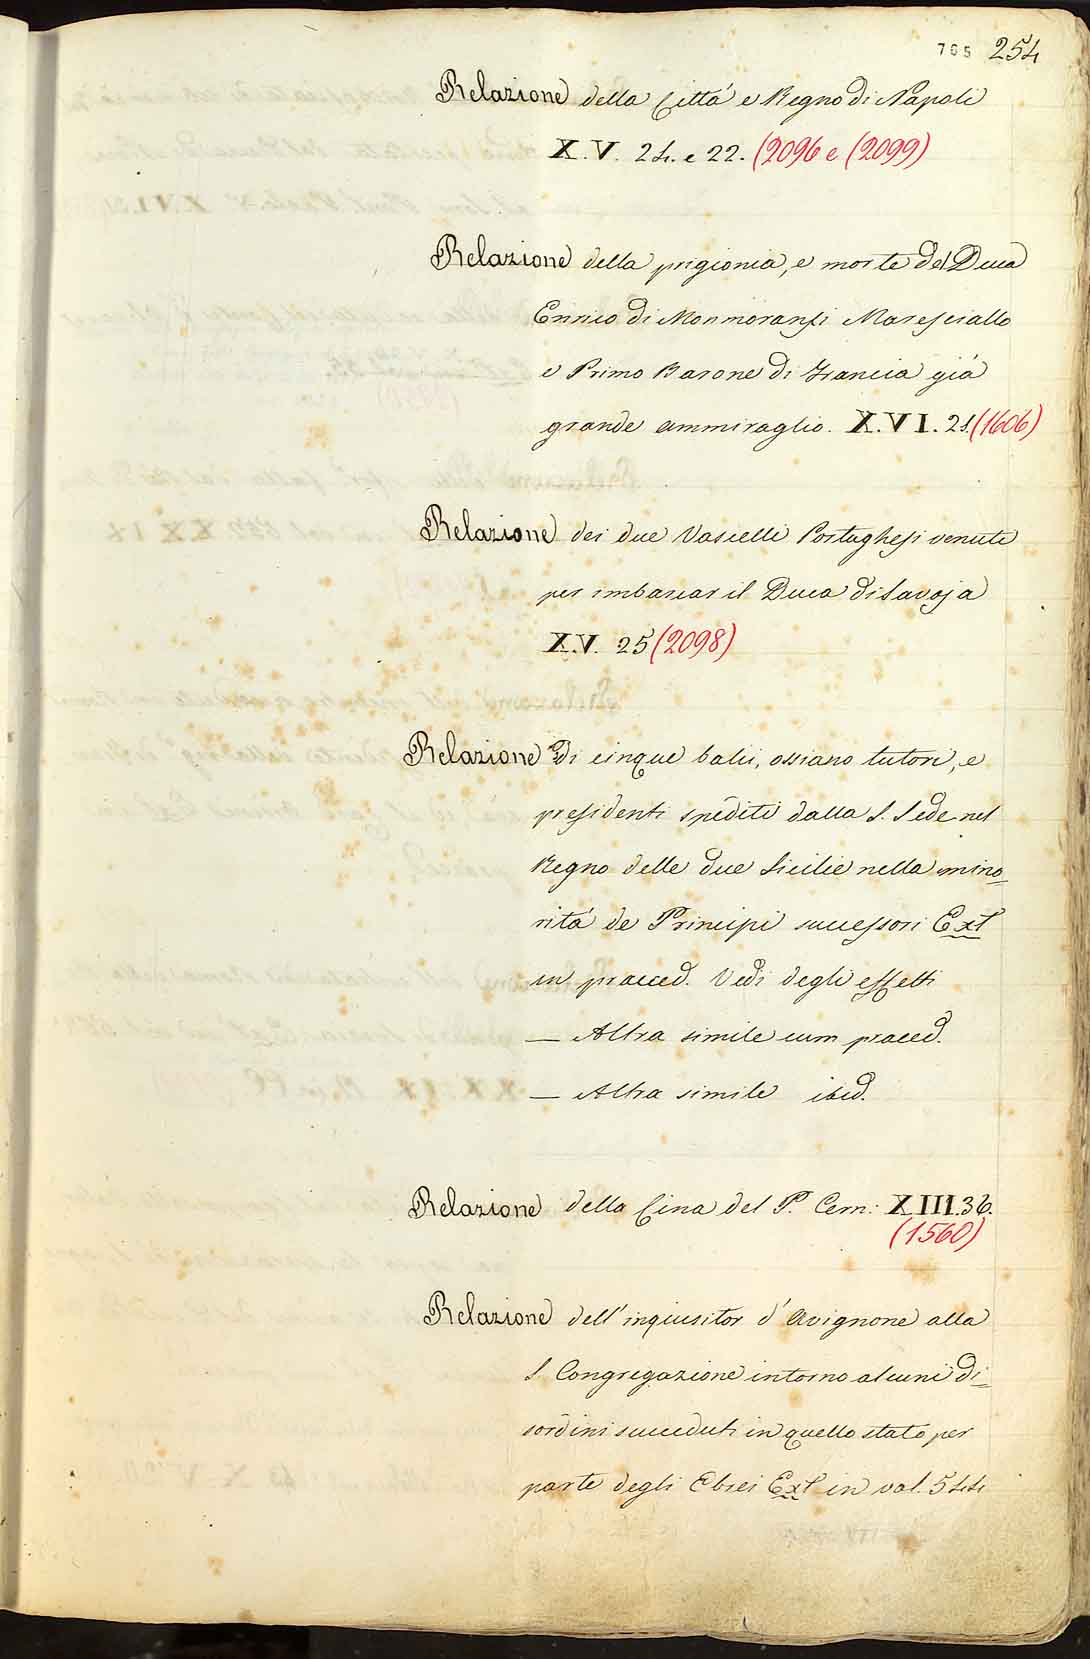 705 254
Relazione della Città e Regno di Napoli
X.V. 24. e 22. (2096 e (2099)
Relazione della prigionia, e morte del Duca
Enrico di Monmoransi Maresciallo
e Primo Barone di Francia già
grande ammiraglio. X.VI. 21. (1606)
Relazione dei due Vascelli Portughesi venuti
per imbarcar il Duca di Savoja
X.V. 25 (2098)
Relazione di cinque balii, ossiano tutori, e
presidenti spediti dalla S. Sede nel
Regno delle due Sicilie nella mino=
rità de Principi successori Ext
in praeced. Vedi degli effetti
— Altra simile cum praeced.
— Altra simile ibid.
Relazione della Cina del P. Cern: XIII.36.
(1560)
Relazione dell'inquisitor d'Avignone alla
S. Congregazione intorno alcuni di=
sordini succeduti in quello stato per
parte degli Ebrei Ext in vol. 544